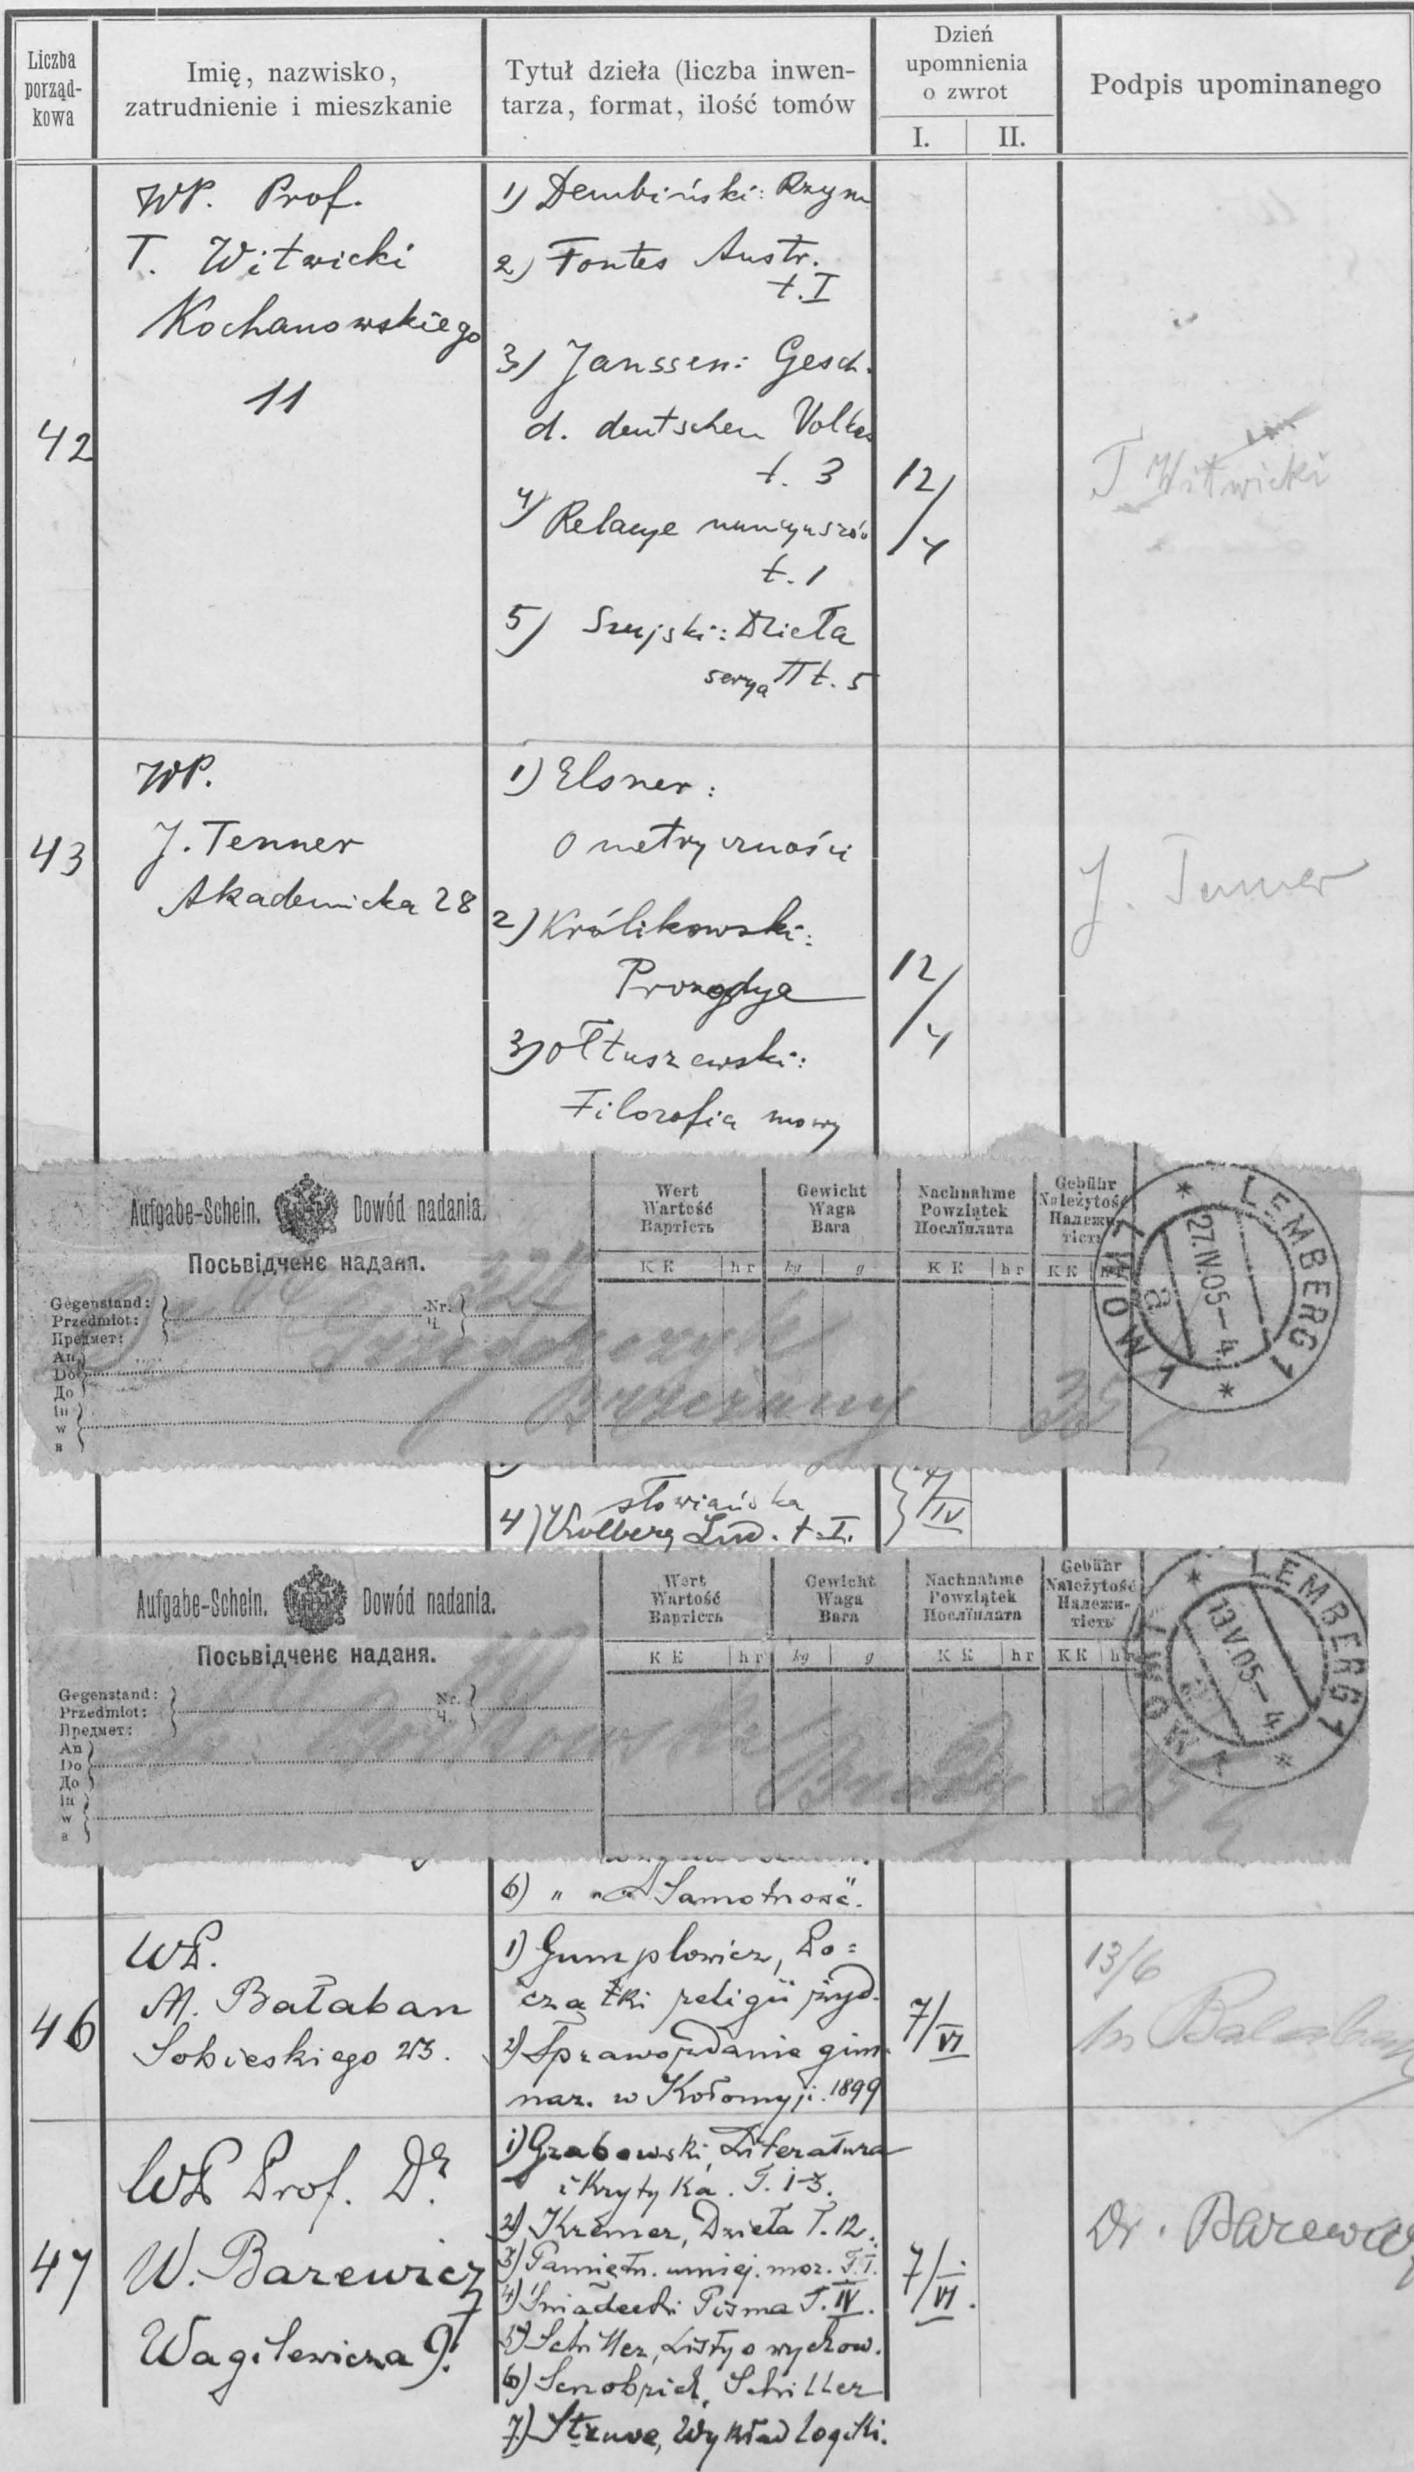 Liczba
porząd-
kowa
Imię, nazwisko,
zatrudnienie i mieszkanie
Tytuł dzieła (liczba inwen-
tarza, format, ilość tomów
Dzień
upomnienia
o zwrot
I. II.
Podpis upominanego
42
WP. Prof.
T. Witwicki
Kochanowskiego
11
1) Dembiński: Rzym
2) Fontes Austr.
t. I
3) Janssen: Gesch.
d. deutschen Volkes
t. 3
4) Relacye nuncyuszów
t. 1
5) Szujski: Dzieła
serya II t. 5
12/4
T Witwicki
43
WP.
J. Tenner
Akademicka 28
1) Elsner:
O metryczności
2) Królikowski:
Prozodya
3) Ołtuszewski:
Filozofia mowy
12/4
J. Tenner
Aufgabe-Schein. Dowód nadania.
Посьвідченє наданя.
Gegenstand:
Przedmiot:
Предмет:
Nr.
Ч.
An
Do
До
In
w
в
Wert
Wartość
Вартість
Gewicht
Waga
Вага
Nachnahme
Powziątek
Послїплата
Gebühr
Należytość
Належи-
тість
K K hr kg g K K hr K K hr
Brzeżany
35
LEMBERG 1
LWÓW 1
27.IV.05-4
a
słowiańska
4) Kolberg Lud. t. I.
/IV
Aufgabe-Schein. Dowód nadania.
Посьвідченє наданя.
Gegenstand:
Przedmiot:
Предмет:
Nr.
Ч.
An
Do
До
In
w
в
Wert
Wartość
Вартість
Gewicht
Waga
Вага
Nachnahme
Powziątek
Послїплата
Gebühr
Należytość
Належи-
тість
K K hr kg g K K hr K K hr
Brody
LEMBERG 1
LWÓW 1
13.V.05-4
a
6) " " Samotność.
46
WP.
M. Bałaban
Sobieskiego 23.
1) Gumplowicz, Po=
czątki religii żyd.
2) Sprawozdanie gim
naz. w Kołomyji. 1899
7/VI
13/6
M Bałaban
47
WP Prof. Dr
W. Barewicz
Wagilewicza 9.
1) Grabowski, Literatura
i Krytyka. T. 1-3.
2) Kremer, Dzieła T. 12.
3) Pamiętn. umiej. mor. T. I.
4) Śniadecki Pisma T. IV.
5) Schiller, Listy o wychow.
6) Senobrich, Schiller
7) Struve, Wykład logiki.
7/VI.
Dr. Barewicz